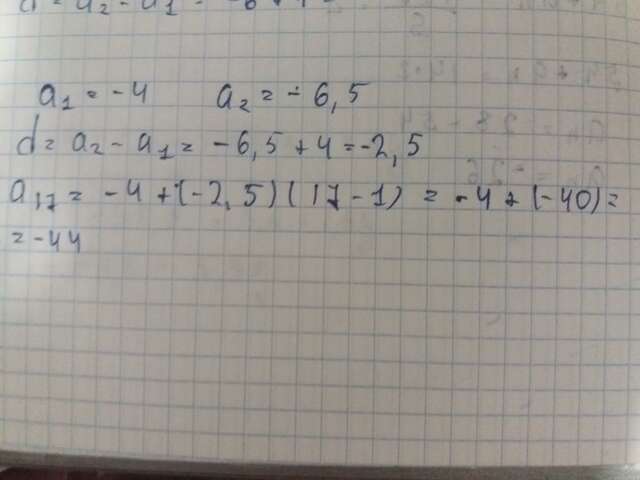 a₁ = -4 a₂ = -6,5
d = a₂ - a₁ = -6,5 + 4 = -2,5
a₁₇ = -4 + (-2,5)(17-1) = -4 + (-40) =
= -44